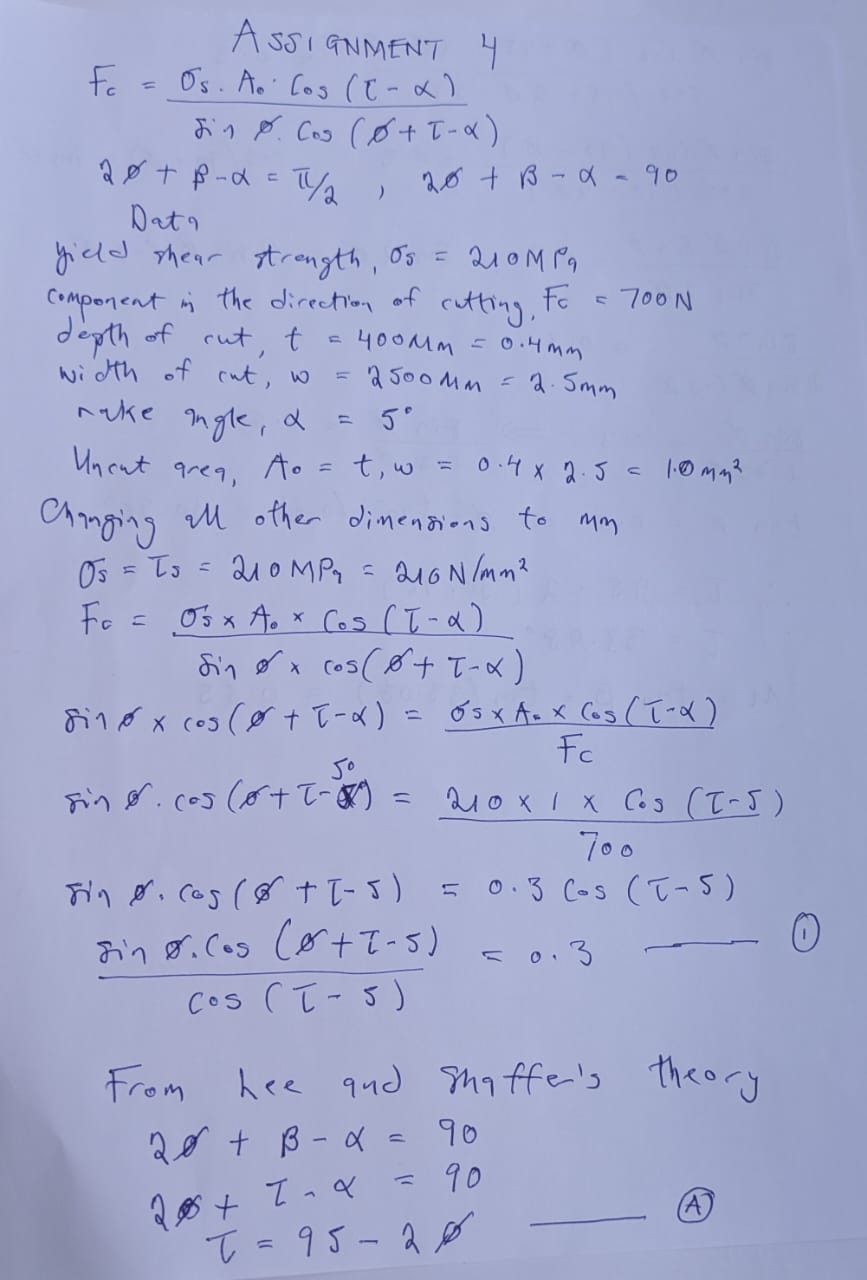 ASSIGNMENT 4
Fc = σs. Ao. Cos (τ - α)
Sin ø. Cos (ø + τ - α)
2ø + β - α = π/2 , 2ø + β - α = 90
Data
yield shear strength, σs = 210MPa
component in the direction of cutting, Fc = 700N
depth of cut, t = 400Mm = 0.4mm
width of cut, w = 2500Mm = 2.5mm
rake angle, α = 5°
Uncut area, Ao = t, w = 0.4 x 2.5 = 1.0mm²
Changing all other dimensions to mm
σs = τs = 210MPa = 210N/mm²
Fc = σs x Ao x Cos (τ - α)
Sin ø x cos(ø + τ - α)
Sin ø x cos(ø + τ - α) = σs x Ao x Cos (τ - α)
Fc
50
Sin ø. cos (ø + τ - ) = 210 x 1 x Cos (τ - 5)
700
Sin ø. Cos (ø + τ - 5) = 0.3 Cos (τ - 5)
Sin ø. Cos (ø + τ - 5) = 0.3 ——— ①
Cos (τ - 5)
From Lee and Shaffer's theory
2ø + β - α = 90
2ø + τ - α = 90
τ = 95 - 2ø ——— Ⓐ